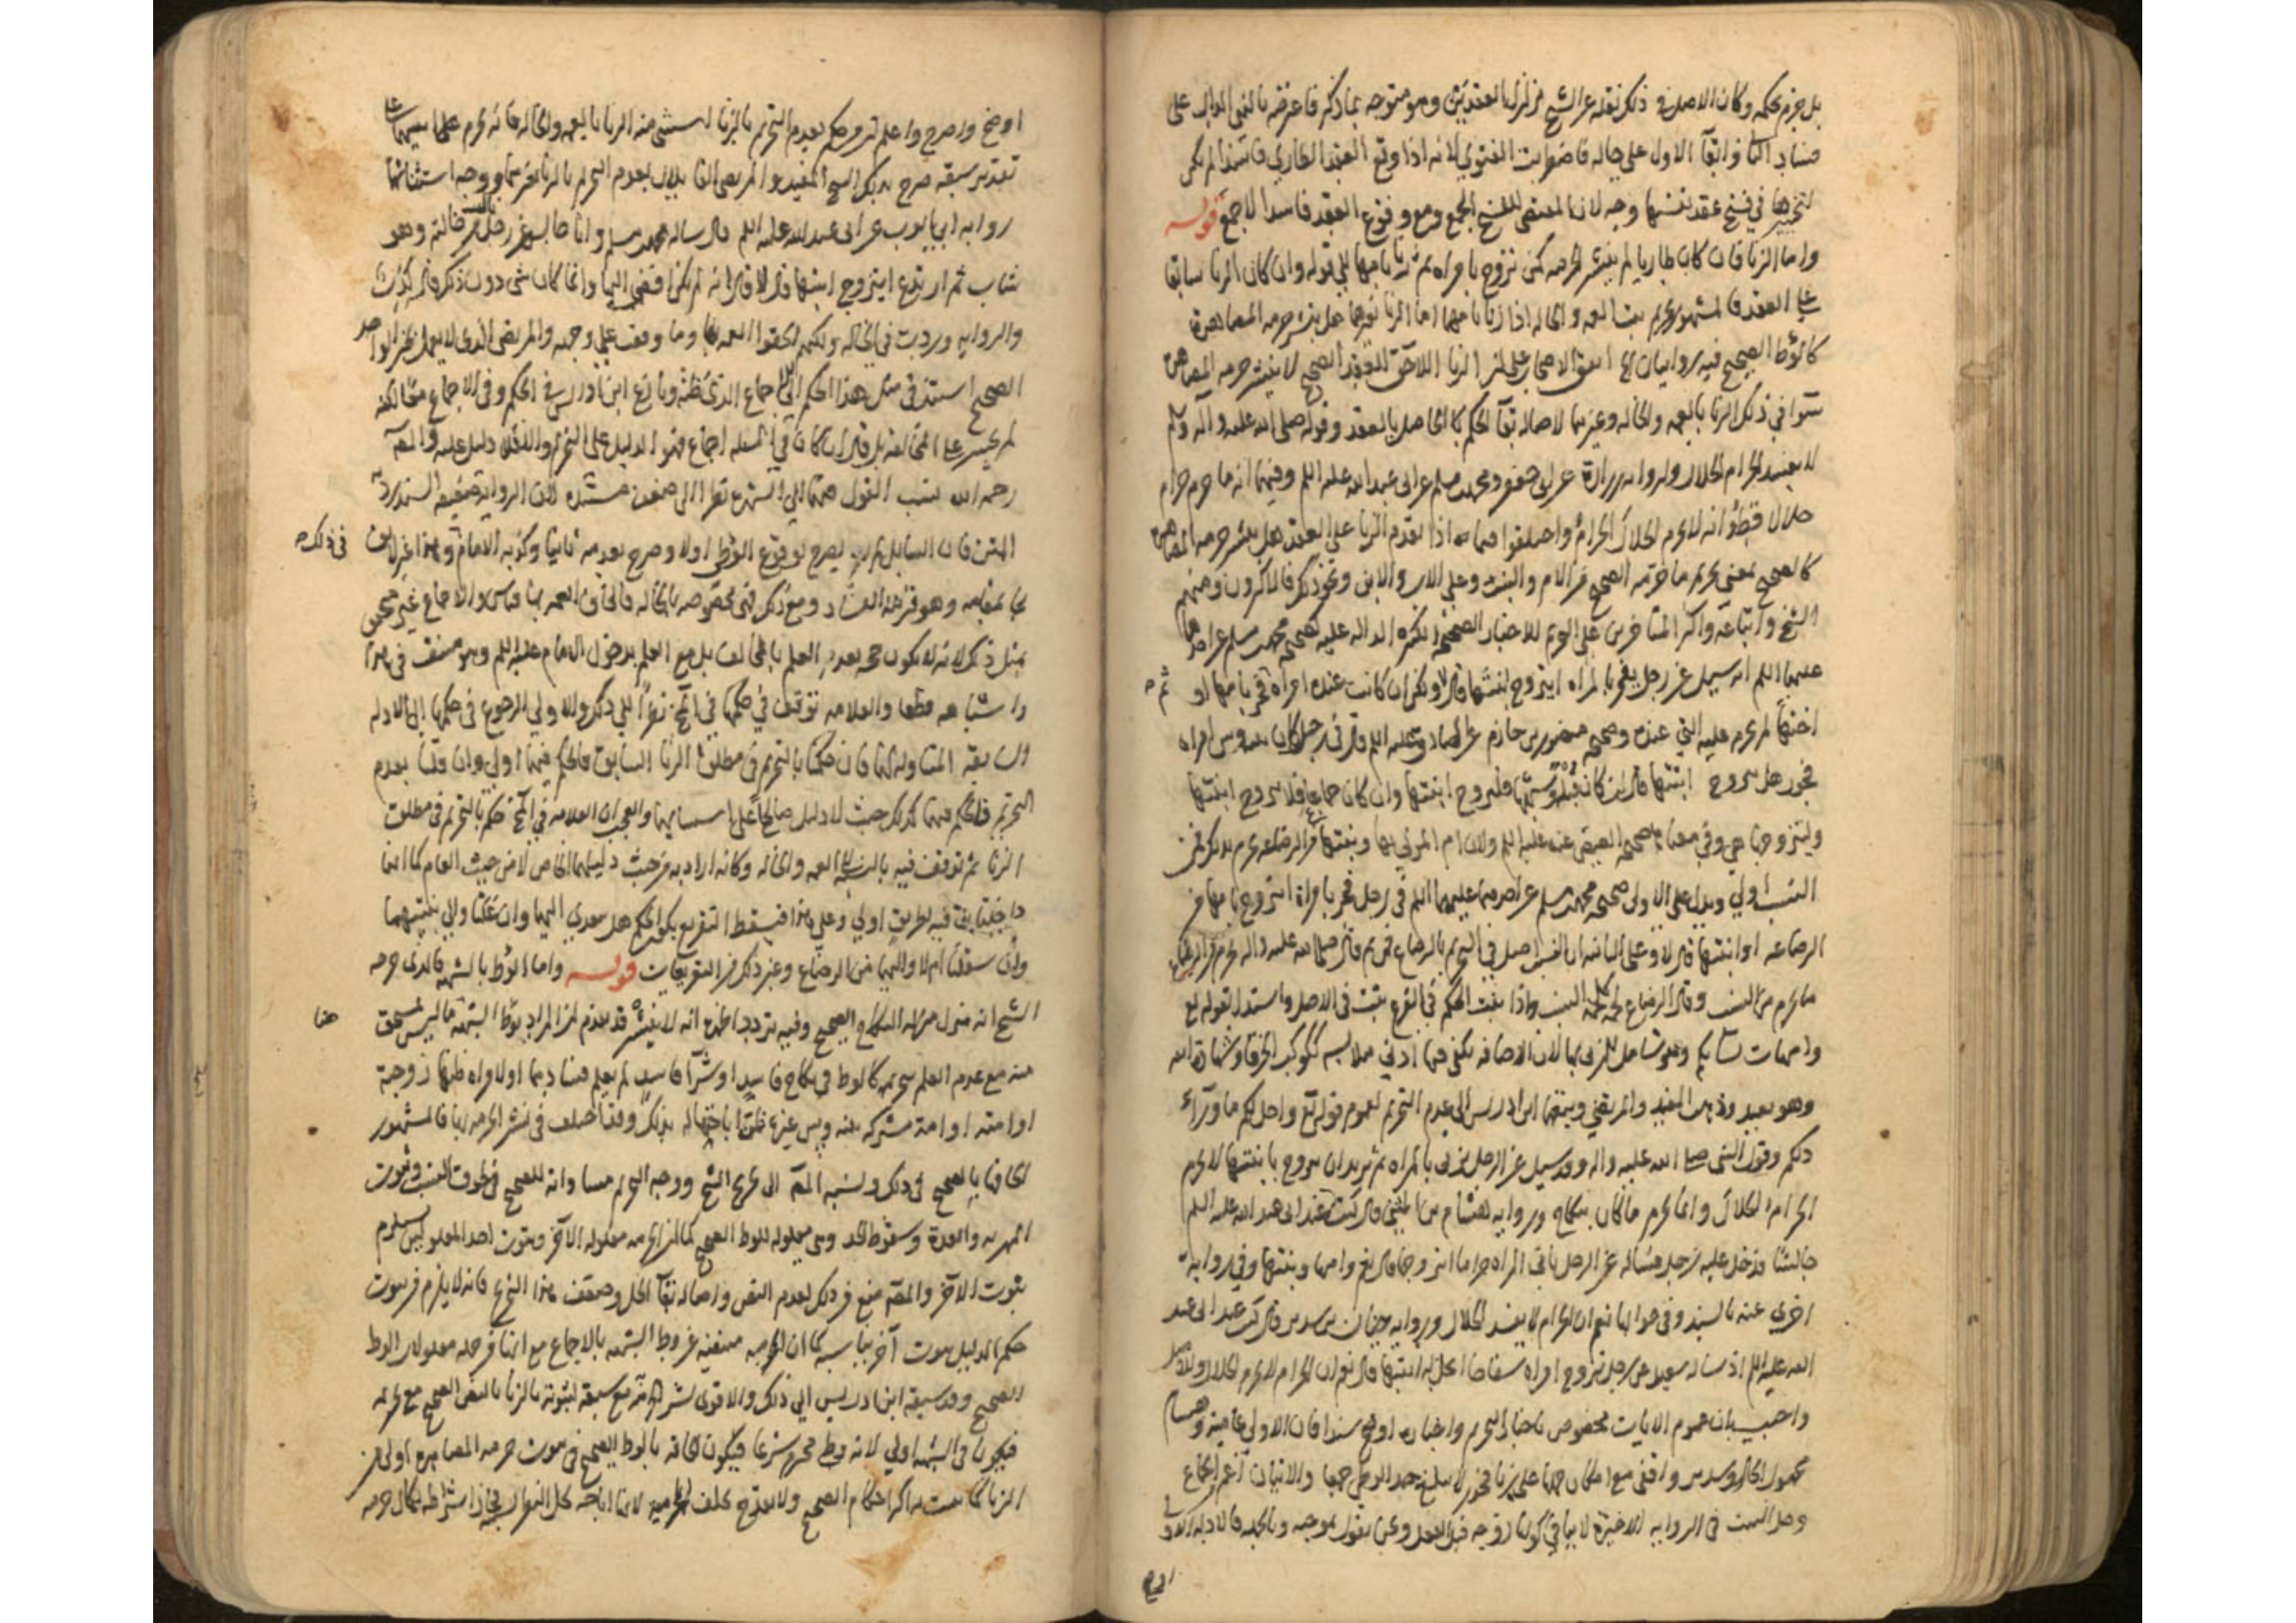 بل جزم بحكمه وكان الاصل في ذلك نقله عن الشيخ تزلزل العقدين وهو متوجه بما ذكر فاعرضه بالفتوى الموالب على
فساد الثاني وابقاء الاول على حاله فاضطربت الفتوى لانه اذا وقع العقد الطاري فاسدا لم يكن
لتخيرها في فسخ عقد نفسها وجه لان المقتضى للفسخ الجمع ومع وقوع العقد فاسدا لا جمع قوله
واما الزنا فان كان طاريا لم ينشر الحرمه كمن تزوج بامراه ثم زنا بامها الى قوله وان كان الزنا سابقا
على العقد فالمشهور تحريم بنت العمه والخاله اذا زنا بامهما اما الزنا بغيرهما هل ينشر حرمه المصاهرة
كالوطء الصحيح فيه روايتان الخ اتفق الاصحاب على ان الزنا اللاحق للعقد الصحيح لا ينشر حرمه المصاهرة
سواء في ذلك الزنا بالعمه والخاله وغيرهما لاصاله بقاء الحكم الحاصل بالعقد وقوله صلى الله عليه وآله وسلم
لا يفسد الحرام الحلال ولروايه زرارة عن ابى جعفر ومحمد بن مسلم عن ابى عبد الله عليه السلم وفيهما انه ما حرم حرام
حلالا قط وانه لا يحرم الحلال الحرام واختلفوا فيما اذا تقدم الزنا على العقد هل ينشر حرمه المصاهرة
كالصحيح بمعنى تحريم ما حرمه الصحيح من الام والبنت وعلى الاب والابن ونحو ذلك فالاكثرون ومنهم
الشيخ واتباعه واكثر المتاخرين على التحريم للاخبار الصحيحه الكثيره الداله عليه كصحيحه محمد بن مسلم عن احدهما
عليهما السلم انه سيل عن رجل يفجر بالمراه ايتزوج ابنتها قال لا ولكن ان كانت عنده امراه ثم فجر بامها او
اختها لم يحرم عليه التي عنده وصحيحه منصور بن حازم عن الصادق عليه السلم قال في رجل كان بينه وبين امراه
فجور هل يتزوج ابنتها قال ان كان قبله او شبهها فليتزوج ابنتها وان كان جماعا فلا يتزوج ابنتها
وليتزوجها هي وفي معناها صحيحه العيص عنه عليه السلم ولان ام المزني بها وبنتها من الرضاعه تحرم بذلك فمن
النسب اولى ويدل على الاولى صحيحه محمد بن مسلم عن احدهما عليهما السلم في رجل فجر بامراة ايتزوج بامها من
الرضاعه او ابنتها قال لا وعلى الثانيه ان النسب اصل في التحريم بالرضاع فمن ثم قال صلى الله عليه واله يحرم من الرضاع
ما يحرم من النسب وقال الرضاع لحمة كلحمة النسب واذا ثبت الحكم في الفرع ثبت في الاصل واستدل بقوله تع
وامهات نسائكم وهو شامل للمزني بها لان الاضافه يكفي فيها ادنى ملابسه ككوكب الخرقا وشهادة الله
وهو بعيد وذهب المفيد والمرتضى وتبعهما ابن ادريس الى عدم التحريم لعموم قوله تع واحل لكم ماوراء
ذلكم وقول النبى صلى الله عليه واله وقد سيل عن الرجل يزني بالمراه ثم يريدان يتزوج بابنتها لا يحرم
الحرام الحلال وانما يحرم ما كان بنكاح وروايه هشام بن المثنى قال كنت عند ابى عبد الله عليه السلم
جالسا فدخل عليه رجل فساله عن الرجل ياتي المراه حراما ايتزوجها قال نعم وامها وبنتها وفي رواية
اخرى عنه بالسند وفي جوابها نعم ان الحرام لا يفسد الحلال وروايه حنان بن سدير قال كنت عند ابى عبد
الله عليه السلم اذ ساله سعيد عن رجل تزوج امراه سفاحا اتحل له ابنتها قال نعم ان الحرام لا يحرم الحلال
واجيب بان عموم الايات مخصوص باخبار التحريم واخباره اوضح سندا فان الاولى عامية وهشام
مجهول الحال وسدير واقفي مع امكان حملها على فجور لا يبلغ حد الوطى جمعا والاتيان اعم من الجماع
في الروايه الاخيره لا ينافي كونها زوجه قبل الفعل ونحن نقول بموجبه وبالجمله فالادله الاولى
اوضح
اوضح واصرح واعلم ان من حكم بعدم التحريم بالزنا استثنى منه الزنا بالعمه والخاله فانه يحرم عليه بنتيهما على
تقدير سبقه صرح بذلك الشيخ المفيد والمرتضى القايلان بعدم التحريم بالزنا بغيرهما ووجه استثنائهما
روايه ابي ايوب عن ابى عبد الله عليه السلم قال ساله محمد بن مسلم وانا جالس عن رجل نال من خالته وهو
شاب ثم ارتدع ايتزوج ابنتها قال لا قال انه لم يكن افضى اليها وانما كان شى دون ذلك قال كذب
والروايه وردت في الخاله ولكنهم الحقوا العمه بها وما وقفت على وجهه والمرتضى الذى لا يعمل بخبر الواحد
الصحيح استند في مثل هذا الحكم الى الاجماع الذي ظنه ونازع ابن ادريس في الحكم وفي الاجماع مع انه
لم يجسر على المخالفه بل قال ان كان في المسله اجماع فهو الدليل على التحريم والا فلا دليل عليه والمص
رحمه الله نسب القول هنا الى الشهره نظرا الى ضعف مستنده لان الروايه ضعيفه السند ردية
المتن فان السايل لم يصرح بوقوع الوطى اولا وصرح بعدمه ثانيا وكذبه الامام في ذلك وهذا غير لايق
بمقامه وهو قرينه الفساد ومع ذلك فهى مخصوصه بالخاله فالحاق العمه بها قياس والاجماع غير متحقق
بمثل ذلك لانه لا يكون حجه بعدم العلم بالمخالف بل مع العلم بدخول الامام عليه السلم وهو منتف في هذا
واشباهه قطعا والعلامه توقف في حكمها في المخ نظرا الى ذلك والاولى الرجوع في حكمها الى الادله
السابقه المتناوله لها فان حكمنا بالتحريم في مطلق الزنا السابق فالحكم فيهما اولى وان قلنا بعدم
التحريم فالحكم فيهما كذلك حيث لا دليل صالحا على استثنائهما والعجب ان العلامه في المخ حكم بالتحريم في مطلق
الزنا ثم توقف فيه بالنسبة الى العمه والخاله وكانه اراد به من حيث دليلهما الخاص لا من حيث العام كما انما
داخلتان فيه بطريق اولى وعلى هذا فيسقط التفريع بكون الحكم هل يتعدى اليهما وان علتا والى بنتيهما
وان سفلتا ام لا واليهما من الرضاع وغير ذلك من التفريعات قوله واما الوطء بالشبهه فالذى خرجه
الشيخ انه منزل منزله النكاح الصحيح وفيه تردد اظهره انه لا ينشر قد تقدم ان المراد بوطء الشبهه هنا ما ليس بمستحق
منه مع عدم العلم بتحريمه كالوطء في نكاح فاسد او شراء فاسد لم يعلم فسادهما او لامراه ظنها زوجته
او امته او امة مشتركه بينه وبين غيره ظن اباحتها له بذلك وقد اختلف في نشر الحرمه بها فالمشهور
الحاقها بالصحيح في ذلك ونسبه المص الى تخريج الشيخ ووجه التحريم مساواته للصحيح في لحوق النسب وثبوت
المهر به والعدة وسقوط الحد وهى معلوله للوطء الصحيح كما ان الحرمه معلوله الاخر وثبوت احد المعلولين يستلزم
ثبوت الاخر والمص منع من ذلك لعدم النص واصاله بقاء الحل وضعف هذا التخريج فانه لا يلزم من ثبوت
حكم لدليل ثبوت آخر يناسبه كما ان المحرميه منتفيه عن وطء الشبهه بالاجماع مع انها من جمله معلولات الوطء
الصحيح وقد سبقه ابن ادريس الى ذلك والاقوى نشر الحرمة مع سبقه لثبوته بالزنا بالنص الصحيح مع تحريمه
فيكون في الشبهه اولى لانه وطى محترم شرعا فيكون الحاقه بالوطء الصحيح في ثبوت حرمه المصاهره اولى من
الزنا كما ثبت له اكثر احكام الصحيح ولا يقدح تخلف المحرميه لانها اباحه